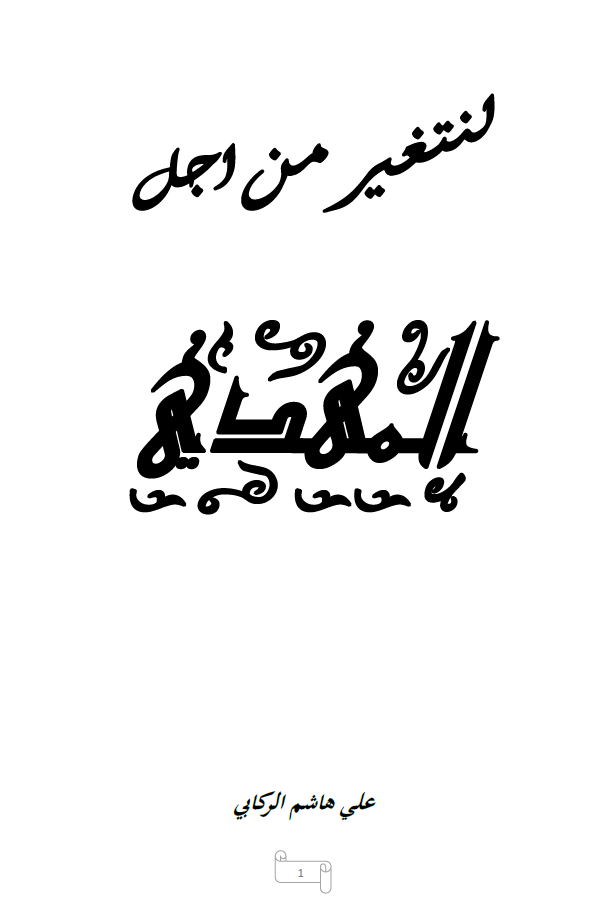 لنتغير من اجل
المهدي
علي هاشم الركابي
1